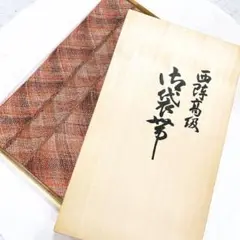 西陣高級
御袋帯